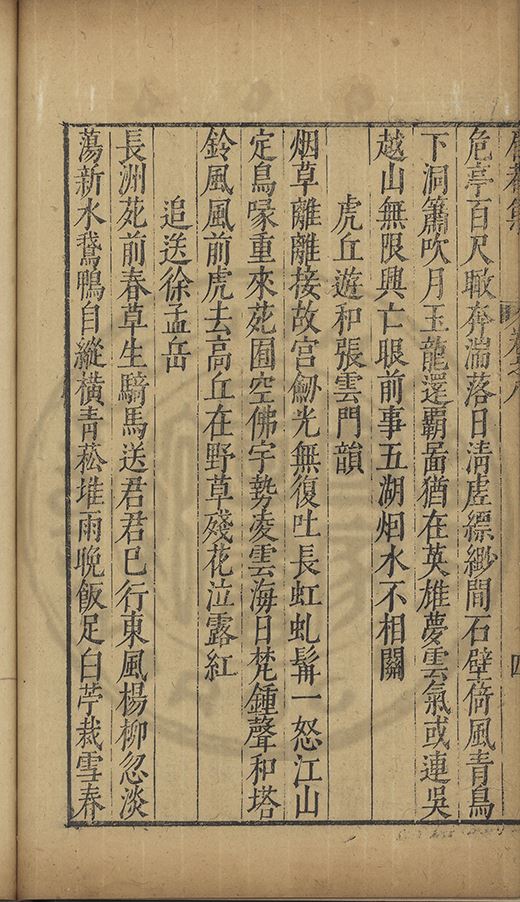 危亭百尺瞰奔湍落日清虛縹緲間石壁倚風青鳥
下洞簫吹月玉龍還霸啚猶在英雄夢雲氣或連吳
越山無限興亡眼前事五湖烟水不相關
虎丘遊和張雲門韻
烟草離離接故宮劒光無復吐長虹虬髯一怒江山
定鳥喙重來苑囿空佛宇勢凌雲海日梵鍾聲和塔
鈴風風前虎去高丘在野草殘花泣露紅
追送徐孟岳
長洲苑前春草生騎馬送君君已行東風楊柳忽淡
蕩新水鵞鴨自縱橫青菘堆雨晚飯足白苧裁雪春